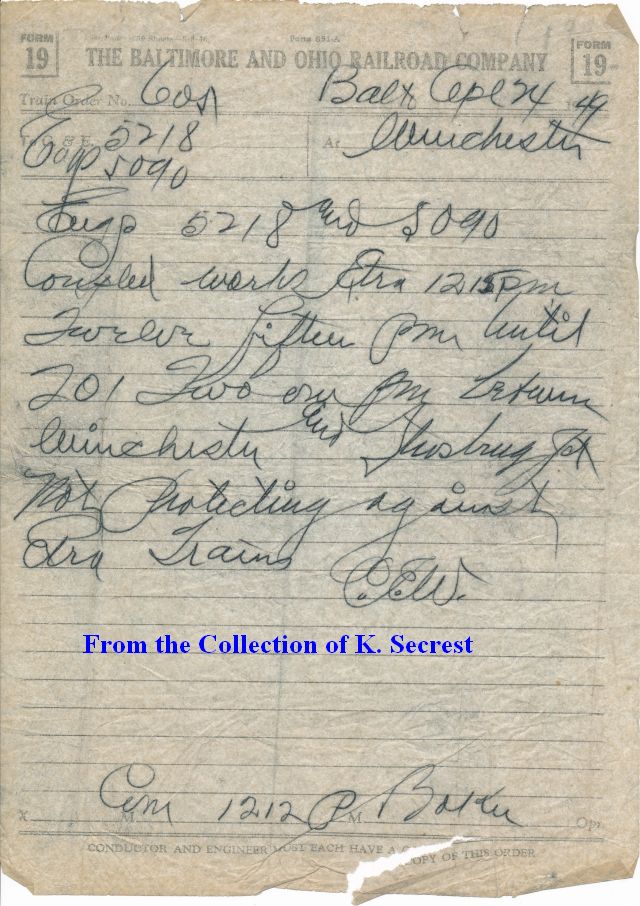 FORM 19
Form 651-A
FORM 19
THE BALTIMORE AND OHIO RAILROAD COMPANY
Train Order No. 609 Balto Apl 24 1949
To C & E 5218 At Winchester
Eng 5090
Engs 5218 and 5090
Coupled works Extra 1215 pm
Twelve fifteen pm until
201 Two one pm between
Winchester and Stasbrug Jct
Not protecting against
Extra Trains
C.E.W.
From the Collection of K. Secrest
Com 1212 P M Opr.
CONDUCTOR AND ENGINEER MUST EACH HAVE A COPY OF THIS ORDER